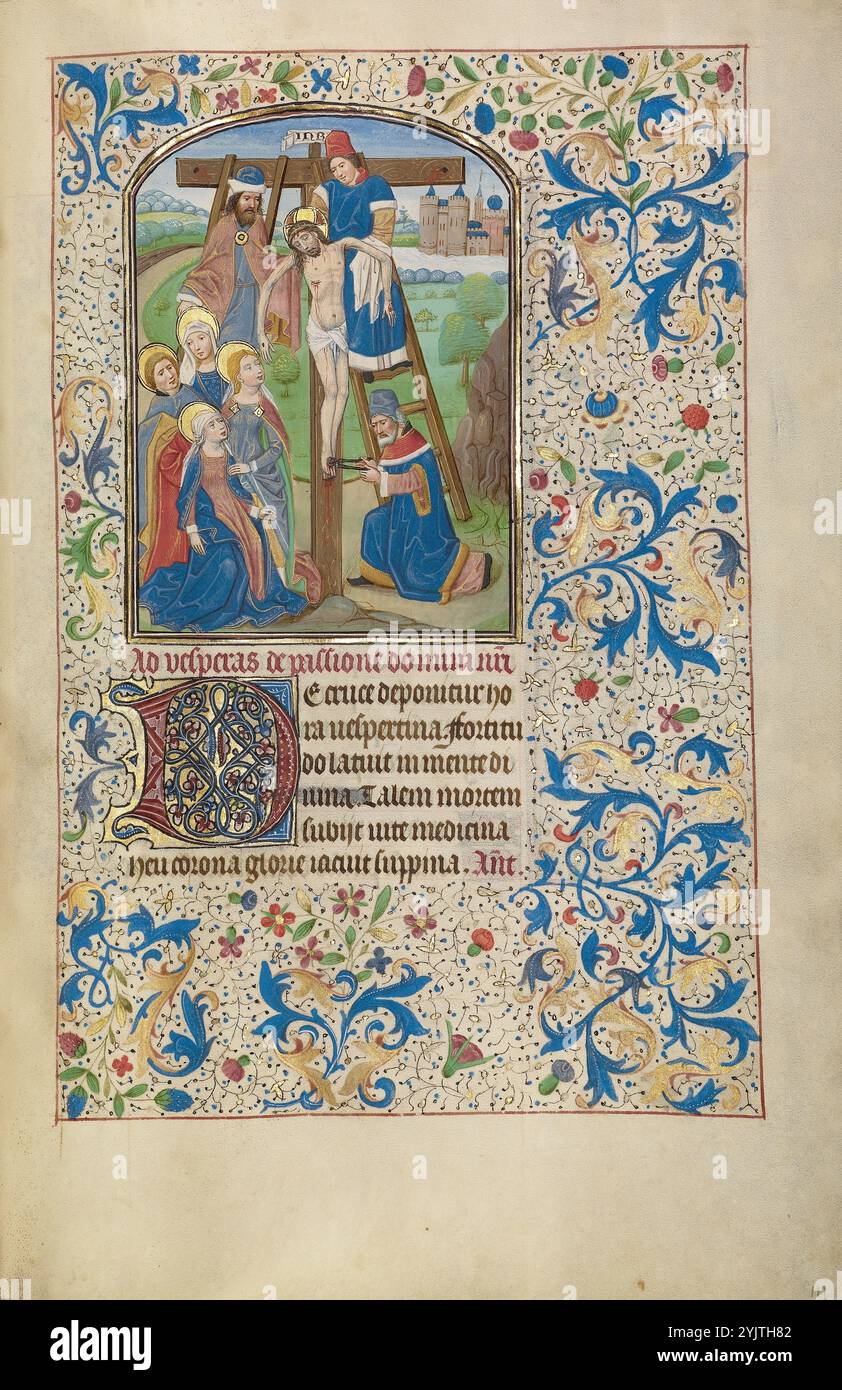 INR
Ad vesperas de passione domini nrī
De cruce deponitur ho
ra vespertina ffortitu
do latuit in mente di
vina Talem mortem
subijt vite medicina
heu corona glorie iacuit suppina. Ant̄
alamy
Image ID: 2YJTH82
www.alamy.com